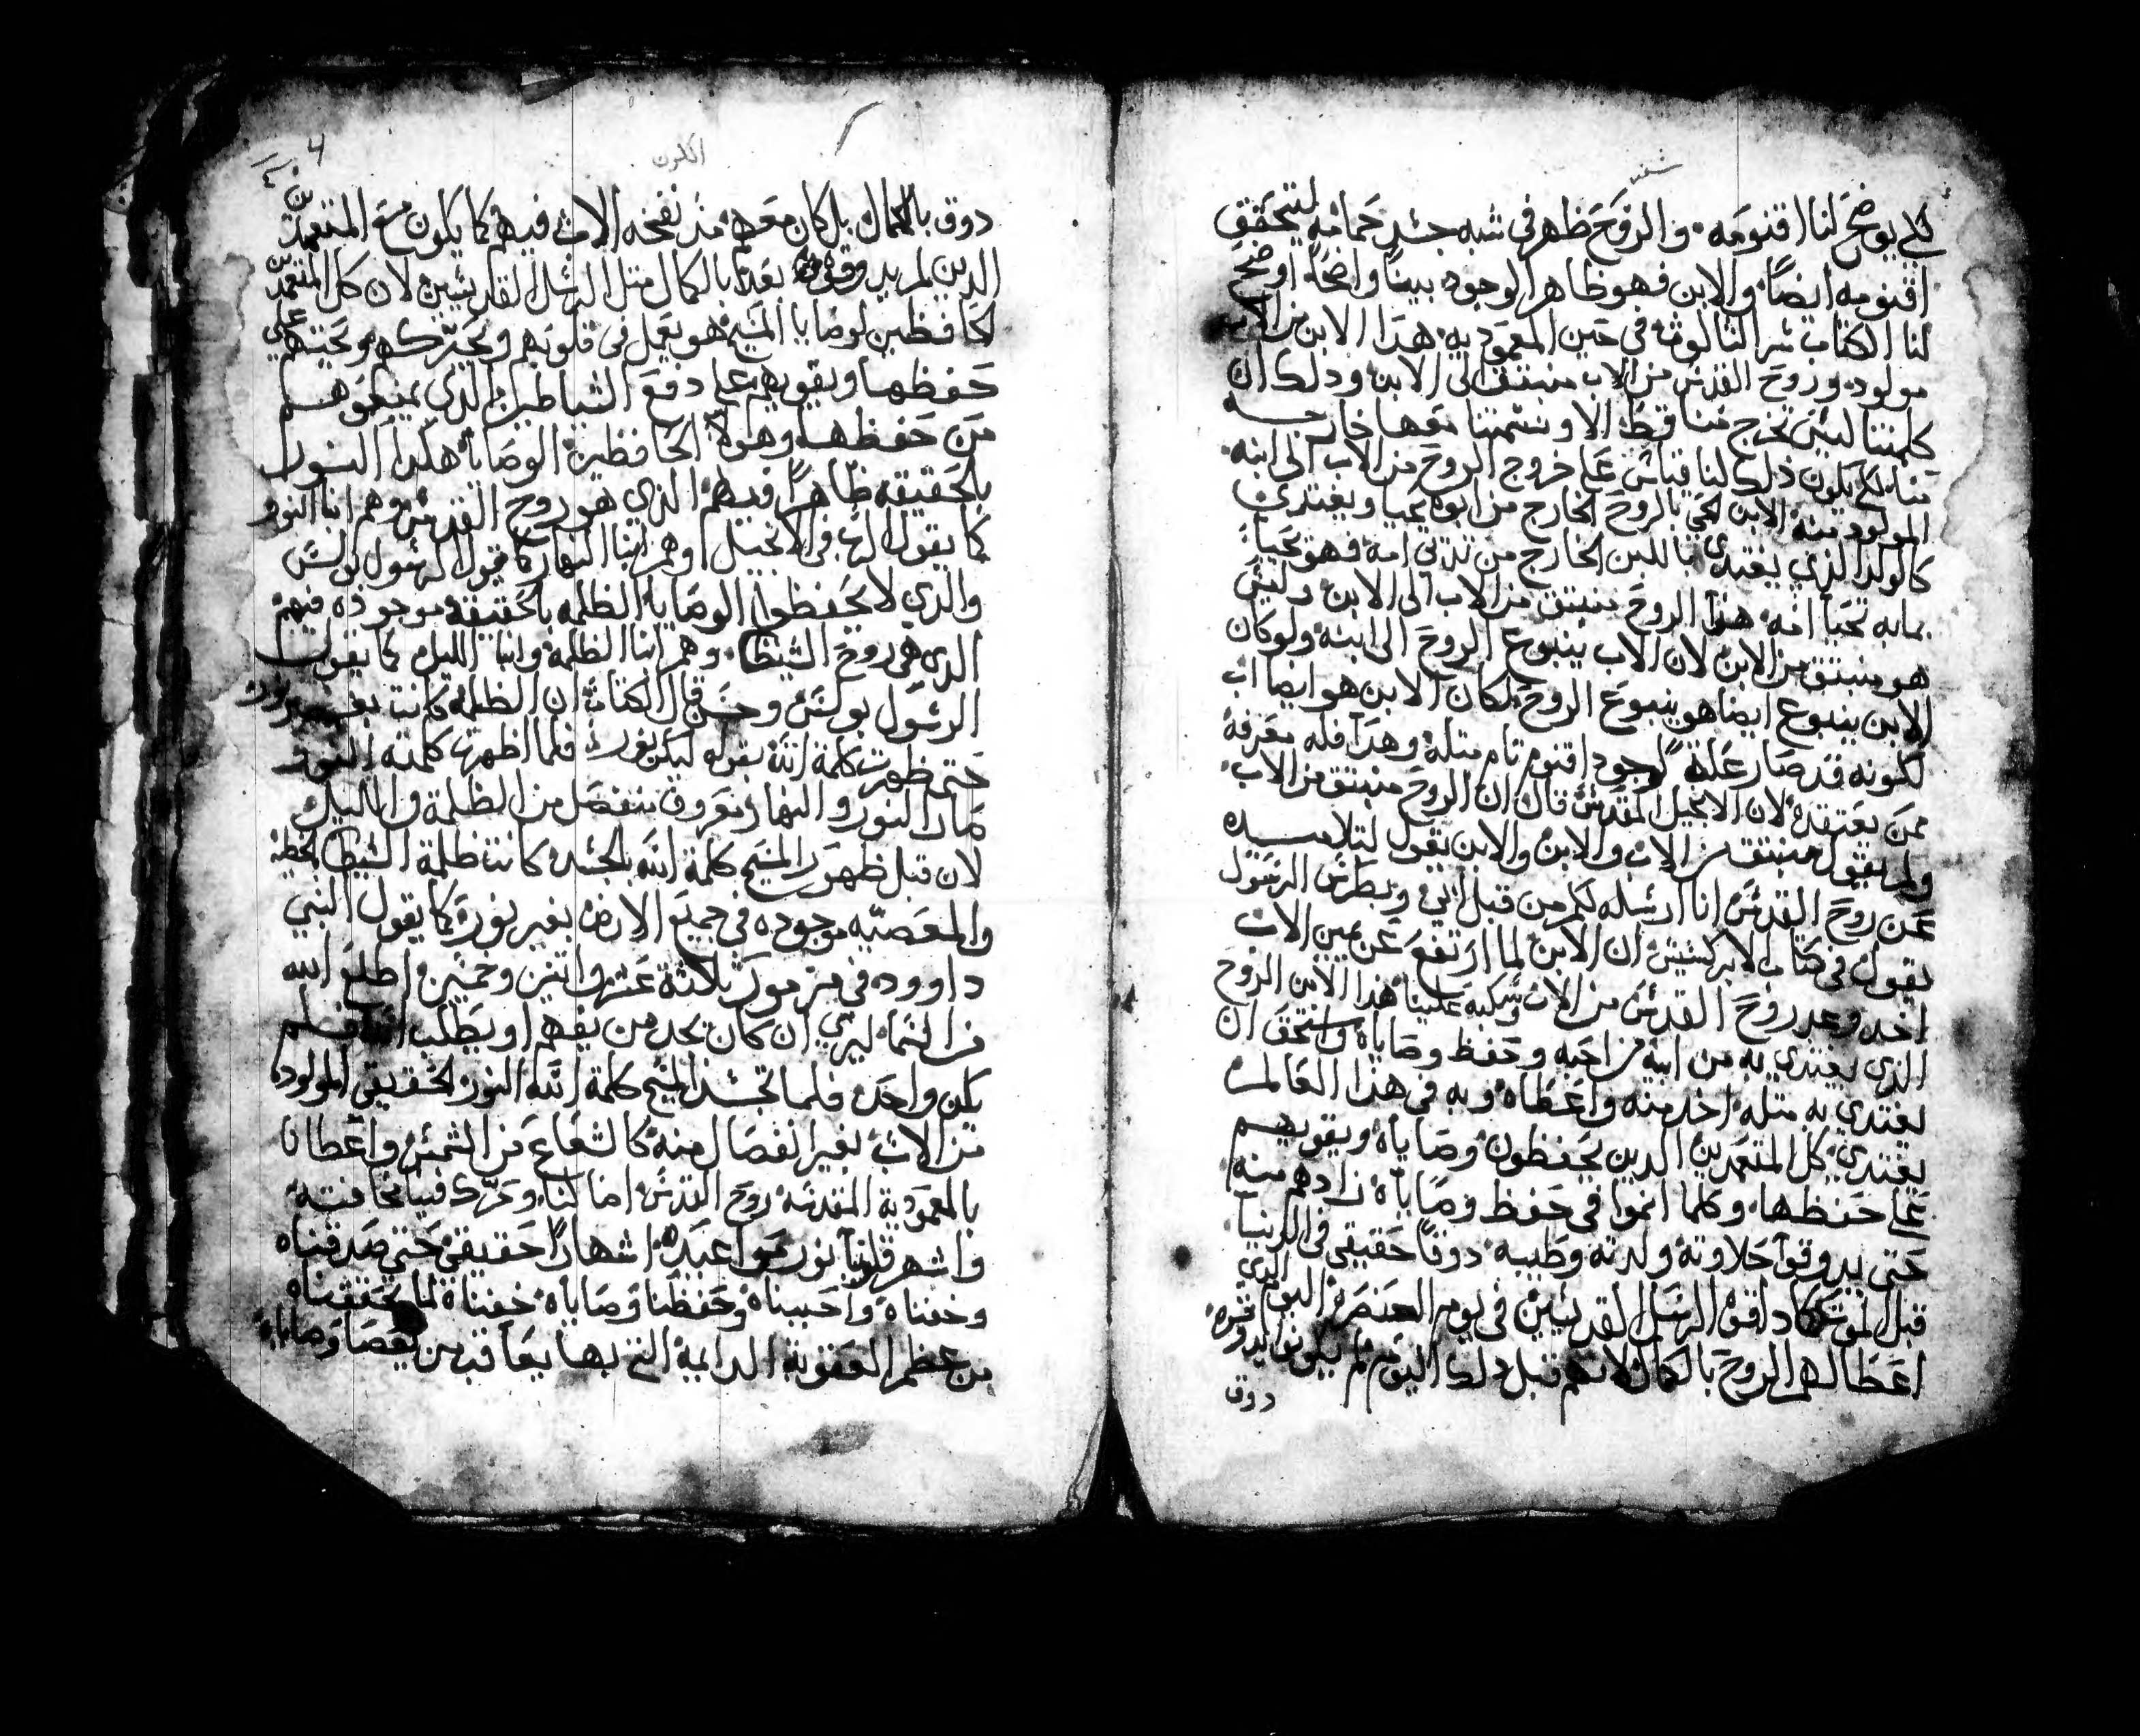 لكي يوضح لنا اقنومه والروح ظهر في شبه جسد حمامه ليتحقق
اقنومه ايضاً والابن فهو ظاهر الوجود بيناً واضحاً اوضح
لنا الكتاب سر التالوت في حين المعموديه هدا الابن من الاب
مولود وروح القدس من الاب منبتق الى الابن ودلك ان
كلمتنا ليس تخرج منا قط الا ونسمتنا معها خارجه
منا لكي يكون دلك لنا قياس على خروج الروح من الاب الى ابنه
المولود منه الابن الحي بالروح الخارج من ابوه يحيا ويغتدي
كالولد الدي يغتدي باللبن الخارج من تدي امه فهو يحيا
بما به تحيا امه هدا الروح منبتق من الاب الى الابن وليس
هو منبتق من الابن لان الاب ينبوع الروح الى ابنه ولو كان
الابن ينبوع ايضا هو ينبوع الروح لكان الابن هو ايضا اب
لكونه قد صار علة لوجود اقنوم تام متله وهدا فله معرفة
ممن يعتقده لان الانجيل المقدس قال ان الروح منبتق من الاب
ولم يقول منبتق من الاب والابن والابن يقول لتلاميده
عن روح القدس انا ارسله لكم من قبل ابي وبطرس الرسول
يقول في كتاب الابركسيس ان الابن لما ارتفع عن يمين الاب
اخد وعد روح القدس من الاب وسكبه علينا هدا الابن الروح
الدي يغتدي به من ابيه من احبه وحفظ وصاياه واستحق ان
يغتدي به متله اخد منه واعطاه وبه في هدا العالم
يغتدي كل المتعمدين الدين يحفظون وصاياه ويقويهم
على حفظها وكلما انموا في حفظ وصاياه زادهم منه
حتى يدوقوا حلاوته ولدته وطيبه دوقاً حقيقي في الدنيا
قبل الموت كما داقوه الرسل القديسين في يوم العنصره اليوم الدي
اعطا لهم الروح بالكمال لانهم قبل دلك اليوم لم يكونوا يدوقوه
دوق
4
دوق بالكمال بل كان معهم مند نفخه الاب فيهم كما يكون مع المتعمدين
الدين لم يدوقوه بعد بالكمال متل الرسل القديسين لان كل المتعمدين
الحافظين لوصايا المسيح هو يعمل في قلوبهم ويحركهم ويحتهم على
حفظها ويقويهم على دفع الشياطين الدي يمنعوهم
من حفظها وهولاء الحافظين الوصايا هكدا النور
بالحقيقه ظاهراً فيهم الدي هو روح القدس وهم ابنا النور
كما يقول الرب في الانجيل وهم ابنا النهار كما يقول الرسول بولس
والدي لا يحفظوا الوصايا الظلمه بالحقيقة موجوده فيهم
الدي هي روح الشيطان وهم ابنا الظلمه وابنا الليل كما يقول
الرسول بولس وحسن قال الكتاب ان الظلمه كانت بغير نور
حتى ظهرت كلمة الله بقوله ليكن نور فلما اظهرتها كلمته النور
صار النور والنهار معروف منفصل من الظلمة والليل
لان قبل ظهور المسيح كلمة الله بالجسد كانت ظلمة الشيطان الخطيه
والمعصيه موجوده في جميع الارض بغير نور كما يقول النبي
داوود في مزمور تلاتة عشر واتنين وخمسين اطلع الله
من السما ليري ان كان يجد من يفهم او يطلب الله فلم
يكن واحد فلما تجسد المسيح كلمة الله النور الحقيقي المولود
من الاب بغير انفصال منه كالشعاع من الشمس واعطانا
بالمعمودية المقدسه روح القدس اضا لنا وحرك فينا مخافته
واشهر قلوبنا نور مواعيده اشهاراً حقيقي حتى صدقناه
وخفناه واحببناه وحفظنا وصاياه خفناه لما تحققناه
من عظم العقوبة الدايمة التي بها يعاقب من يعصا وصاياه